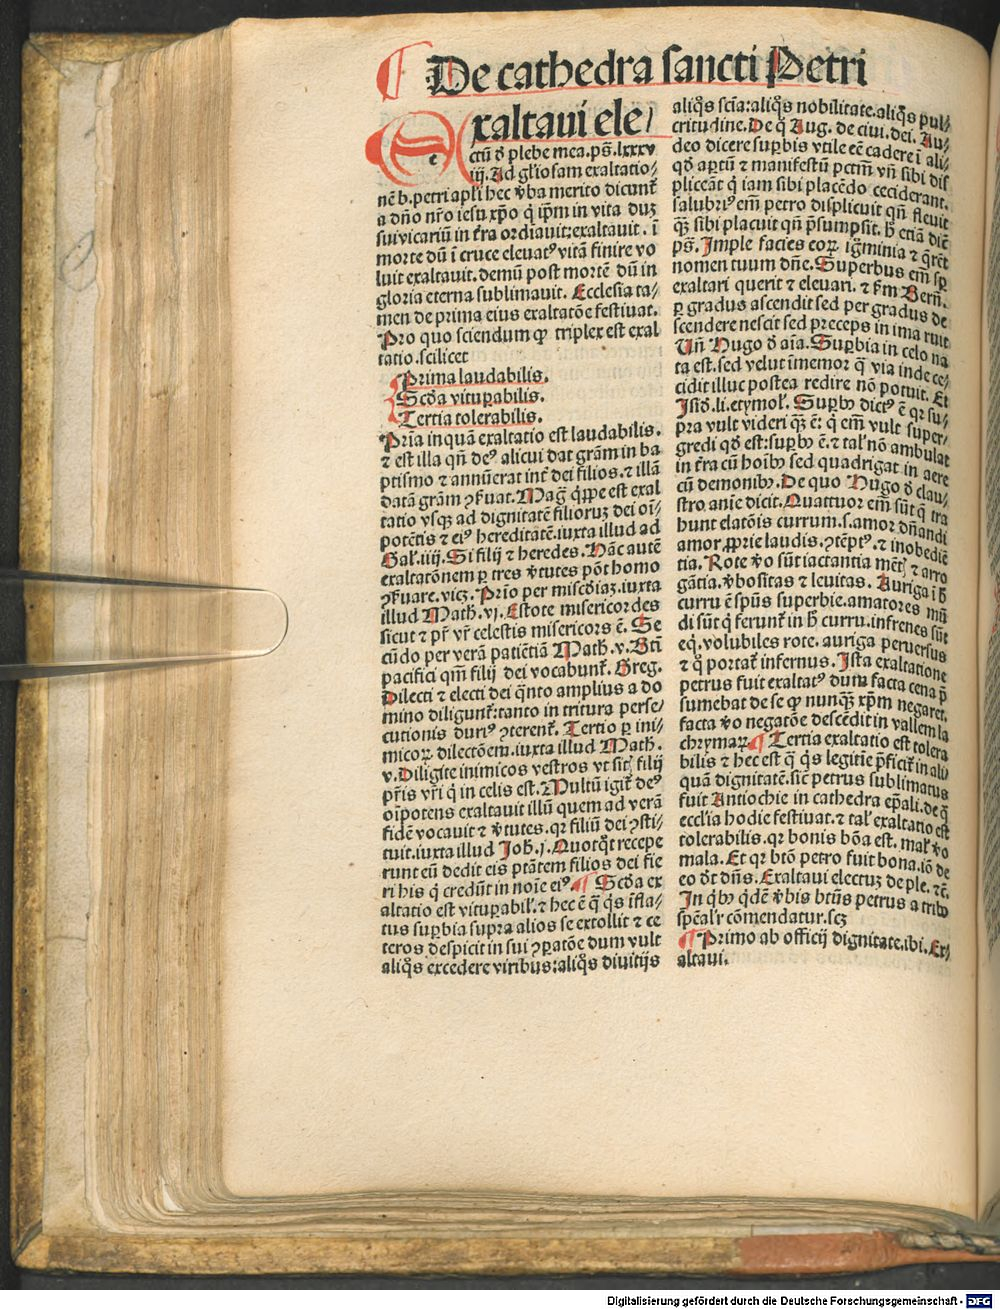 De cathedra sancti Petri
Exaltaui ele/
ctū ꝺ̄ plebe mea. ps̄. lxxxv
iij. Ad gl̓iosam exaltatio⸗
nē b. petri apl̓i hec v̓ba merito dicunt᷑
a dn̄o nr̄o iesu xp̄o q̇ ip̄m in vita duꝫ
sui vicariū in t̓ra ordiauit: exaltauit. ī
morte dū ī cruce eleuatꝰ vitā finire vo
luit exaltauit. demū post mortē dū in
gloria eterna sublimauit. Ecclesia ta⸗
men de prima eius exaltatōe festiuat.
Pro quo sciendum ꝙ triplex est exal
tatio. scilicet
Prima laudabilis.
Scd̓a vituꝑabilis.
Tertia tolerabilis.
Pria̅ inquā exaltatio est laudabilis.
⁊ est illa qn̄ deꝰ alicui dat grām in ba
ptismo ⁊ annūerat int̓ dei filios. ⁊ illā
datā grām ꝯſ̓uat. Mag̅ q̇ppe est exal
tatio vsqꝫ ad dignitatē filioruꝫ dei oī⸗
potētis ⁊ eiꝰ hereditatē. iuxta illud ad
Gal̓. iiij. Si filij ⁊ heredes. Hāc autē
exaltatōnem ꝑ tres v̓tutes pōt homo
ꝯſ̓uare. vicꝫ. Prio per miscd̓iaꝫ. iuxta
illud Math̓. vj. Estote misericordes
sicut ⁊ pr̄ vr̄ celestis misericors ē. Se
cūdo per verā patiētiā Math̓. v. Bt̄i
pacifici qm̄ filij dei vocabunt᷑. Greg.
Dilecti ⁊ electi dei q̄nto amplius a do
mino diligunt᷑: tanto in tritura perse⸗
cutionis duriꝰ ꝯterent᷑. Tertio ꝑ ini⸗
micoꝝ dilectōem. iuxta illud Math̓.
v. Diligite inimicos vestros vt sitꝭ filij
pr̄is vr̄i q̇ in celis est. Multū igit᷑ deꝰ
oīpotens exaltauit illū quem ad verā
fidē vocauit ⁊ v̓tutes. qꝛ filiū dei ꝯsti⸗
tuit. iuxta illud Joh̓. j. Quotq̇t recepe
runt eū dedit eis ptātem filios dei fie
ri his q̇ credūt in noīe eiꝰ. ¶ Scd̓a ex
altatio est vituꝑabil̓. ⁊ hec ē q̄ q̇s īfla⸗
tus suꝑbia supra alios se extollit ⁊ ce
teros despicit in sui ꝯparatōe dum vult
aliq̇s excedere viribus: aliq̇s diuitijs
aliq̇s sciā: aliq̇s nobilitate. aliq̇s pul⸗
critudine. De q̊ Aug. de ciui. dei. Au⸗
deo dicere suꝑbis vtile eē cadere ī ali⸗
qd̓ aꝑtū ⁊ manifestū pctm̄ vn̄ sibi dis
pliceāt q̇ iam sibi placēdo ceciderant.
salubriꝰ em̄ petro displicuit qn̄ fleuit
qꝫ̄ sibi placuit qn̄ p̄sumpsit. h̓ etiā dic̄
ps̄. Imple facies eoꝝ igͣminia ⁊ q̄rēt
nomen tuum dn̄e. Superbus em̄ sꝑ
exaltari querit ⁊ eleuari. ⁊ ẜm Bern̄.
ꝑ gradus ascendit sed per gradus de
scendere nescit sed preceps in ima ruit
Vn̄ Hugo ꝺ̄ aīa. Suꝑbia in celo na
ta est. sed velut īmemor q̄ via inde ce⸗
cidit illuc postea redire nō potuit. Et
Isid̓. li. etymol̓. Suꝑbꝰ dictꝰ ē qꝛ su⸗
pra vult videri qꝫ̄ ē: q̇ em̄ vult super⸗
gredi qd̓ est: suꝑbꝰ ē. ⁊ tal̓ nō ambulat
in t̓ra cū hoībꝰ sed quadrigat in aere
cū demonibꝰ. De quo Hugo ꝺ̄ clau⸗
stro anīe dicit. Quattuor em̄ sūt q̄ tra
hunt elatōis currum. s. amor dn̄andi
amor ꝓprie laudis. ꝯtēptꝰ. ⁊ inobediē
tia. Rote v̓o sūt iactantia mētꝭ ⁊ arro
gātia. v̓bositas ⁊ leuitas. Auriga ī h̓
curru ē sp̄us superbie. amatores mū
di sūt q̇ ferunt᷑ in h̓ curru. infrenes sūt
eq̇. volubiles rote. auriga peruersus
⁊ q̇ portat᷑ infernus. Ista exaltatione
petrus fuit exaltatꝰ dum facta cena p̄
sumebat de se ꝙ nunqꝫ̄ xp̄m negaret.
facta v̓o negatōe descēdit in vallem la
chrymaꝝ ¶ Tertia exaltatio est tolera
bilis ⁊ hec est q̄ q̇s legitie p̄ficit᷑ in ali
quā dignitatē. sic̄ petrus sublimatus
fuit Antiochie in cathedra ep̄ali. de q̄
eccl̓ia hodie festiuat. ⁊ tal̓ exaltatio est
tolerabilis. qꝛ bonis bōa est. mal̓ v̓o
mala. Et qꝛ btō petro fuit bona. iō de
eo d̓r dn̄s. Exaltaui electuꝫ de ple. ⁊c̄.
In q̇bꝰ q̇dē v̓bis btūs petrus a tribꝰ
sp̄ealr̓ cōmendatur. scꝫ
¶ Primo ab officij dignitate. ibi. Ex⸗
altaui.
Digitalisierung gefördert durch die Deutsche Forschungsgemeinschaft - DFG